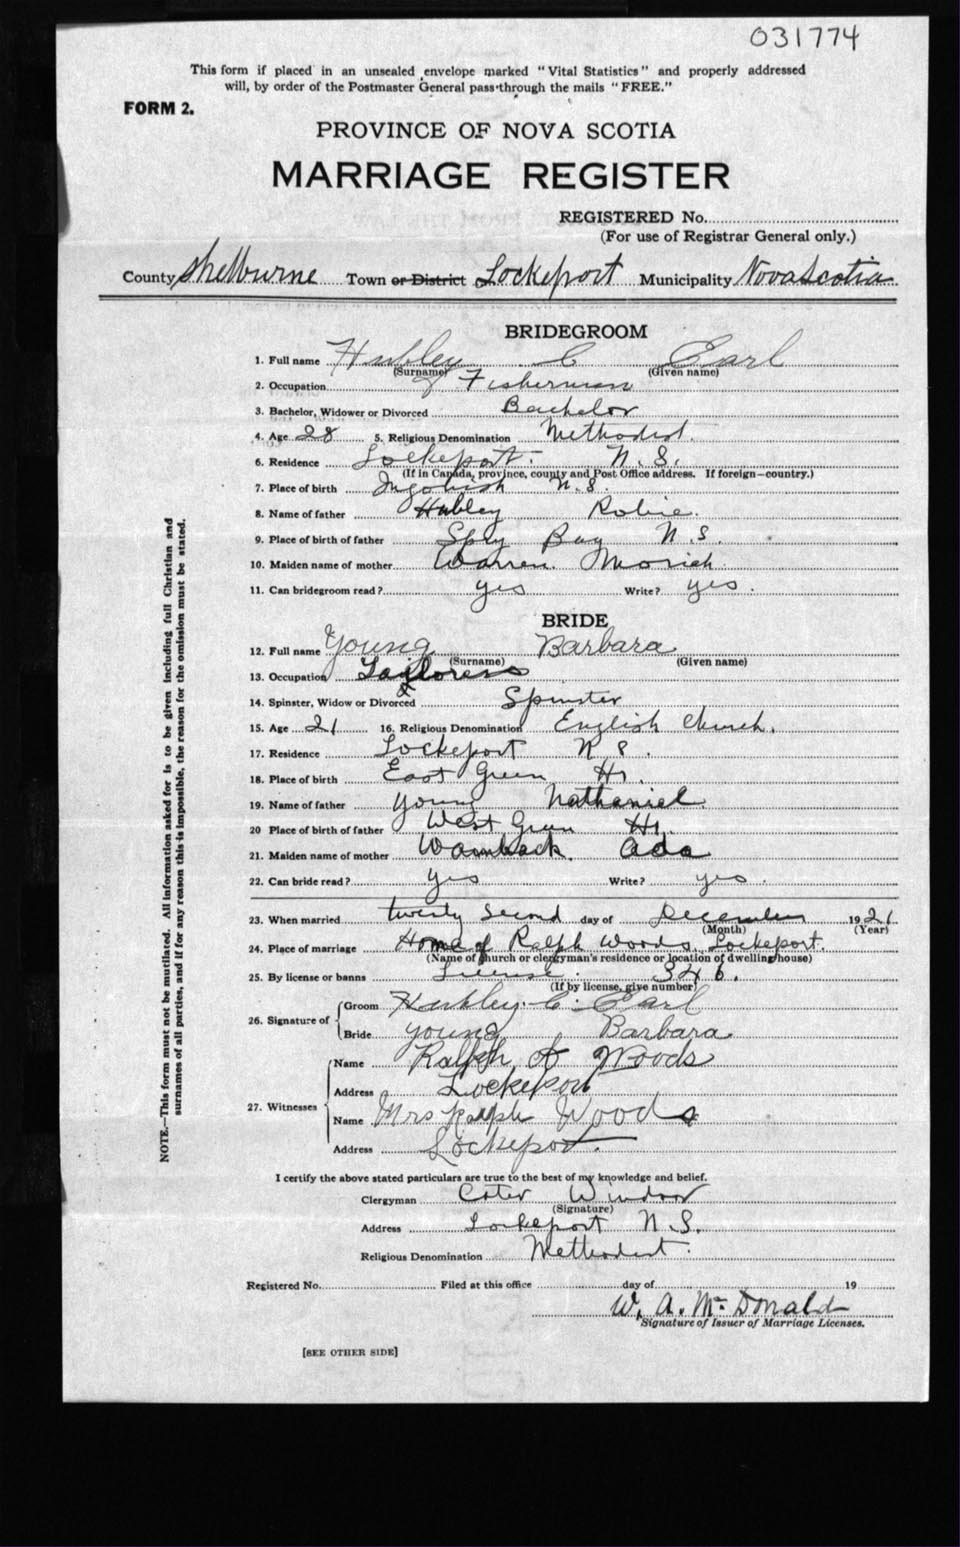 031774
This form if placed in an unsealed envelope marked "Vital Statistics" and properly addressed
will, by order of the Postmaster General pass through the mails "FREE."
FORM 2.
PROVINCE OF NOVA SCOTIA
MARRIAGE REGISTER
REGISTERED No.
(For use of Registrar General only.)
County Shelburne Town or District Lockeport Municipality Nova Scotia
BRIDEGROOM
1. Full name Hubley C Earl
(Surname) (Given name)
2. Occupation Fisherman
3. Bachelor, Widower or Divorced Bachelor
4. Age 28 5. Religious Denomination Methodist.
6. Residence Lockeport. N. S.
(If in Canada, province, county and Post Office address. If foreign—country.)
7. Place of birth N. S.
8. Name of father Hubley Robie.
9. Place of birth of father Spry Bay N. S.
10. Maiden name of mother Warren.
11. Can bridegroom read? yes Write? yes.
BRIDE
12. Full name Young Barbara
(Surname) (Given name)
13. Occupation Tayloress
14. Spinster, Widow or Divorced Spinster
15. Age 21 16. Religious Denomination English Church.
17. Residence Lockeport N S.
18. Place of birth East Green Hr.
19. Name of father Young Nathaniel
20 Place of birth of father West Green Hr.
21. Maiden name of mother Wamback. Ada
22. Can bride read? yes Write? yes.
23. When married twenty Second day of December 1921
(Month) (Year)
24. Place of marriage Home of Ralph Woods, Lockeport.
(Name of church or clergyman's residence or location of dwelling house)
25. By license or banns License. 346.
(If by license, give number)
26. Signature of
Groom Hubley. C. Earl
Bride Young Barbara
27. Witnesses
Name Ralph Woods
Address Lockeport
Name Mrs Ralph Woods
Address Lockeport.
I certify the above stated particulars are true to the best of my knowledge and belief.
Clergyman Cater Windsor
(Signature)
Address Lockeport N. S.
Religious Denomination Methodist.
Registered No. Filed at this office day of 19
W. A. McDonald
Signature of Issuer of Marriage Licenses.
[SEE OTHER SIDE]
NOTE.—This form must not be mutilated. All information asked for is to be given including full Christian and
surnames of all parties, and if for any reason this is impossible, the reason for the omission must be stated.